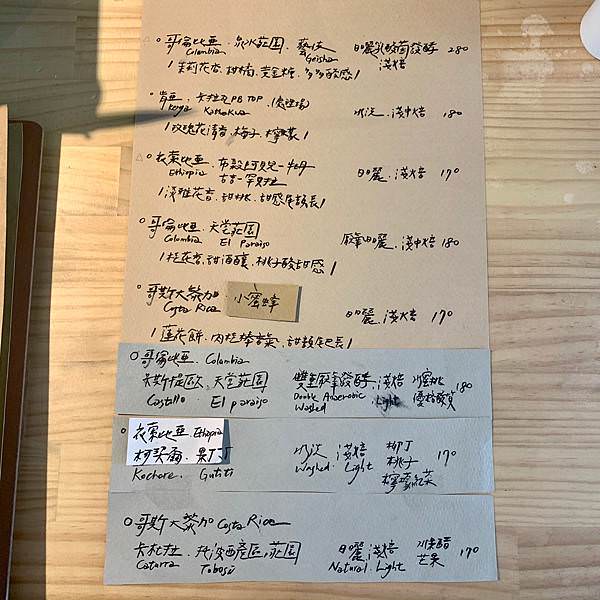 哥倫比亞．泉水莊園．藝伎 日曬乳酸菌發酵 280
Colombia Geisha 淺焙
/茉莉花香.柑橘.麥金糖.多多酸感/
肯亞．卡柱瓦PB TOP．(處理場) 水洗．淺中焙 180
Kenya Kamakua
/玫瑰花清香.梅子.檸檬/
衣索比亞．布穀阿貝兒 日曬．淺焙 170
Ethiopia 吉吉
/淡雅花香.甜桃.甜感尾韻長/
哥倫比亞．天堂莊園 厭氧日曬.淺中焙 180
Colombia El Paraiso
/桂花香.甜酒釀.桃子酸甜感/
哥斯大黎加．小蜜蜂
Costa Rica 日曬．淺焙 170
/蓮花餅.肉桂棒香氣.甜韻尾長/
哥倫比亞．Colombia
卡斯提歐．天堂莊園 雙重厭氧發酵.淺焙 水蜜桃 180
Castillo El paraiso Double Anaerobic Light 優格酸質
Washed
衣索比亞．Ethiopia
柯契爾．果丁丁 水洗 淺焙 柳丁 170
Kochere． Gutiti Washed． Light 桃子
檸檬紅茶
哥斯大黎加 Costa Rica
卡杜拉．托波西產區.莊園 日曬 淺焙 水果醋 170
Caturra Tobosi Natural．Light 芒果